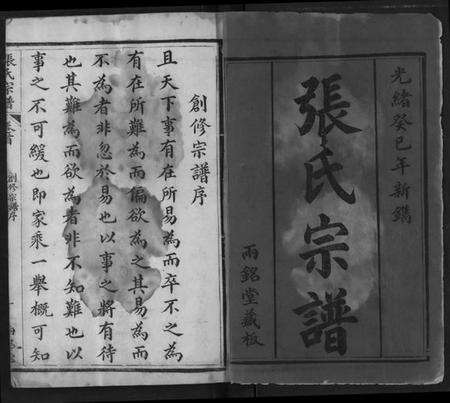 光緒癸巳年新鐫
張氏宗譜
兩銘堂藏板
創修宗譜序
且天下事有在所易為而卒不之為
有在所難為而偏欲為之其易為而
不為者非忽於易也以事之將有待
也其難為而欲為者非不知難也以
事之不可緩也即家乘一舉概可知
張氏宗譜
創修宗譜序
一